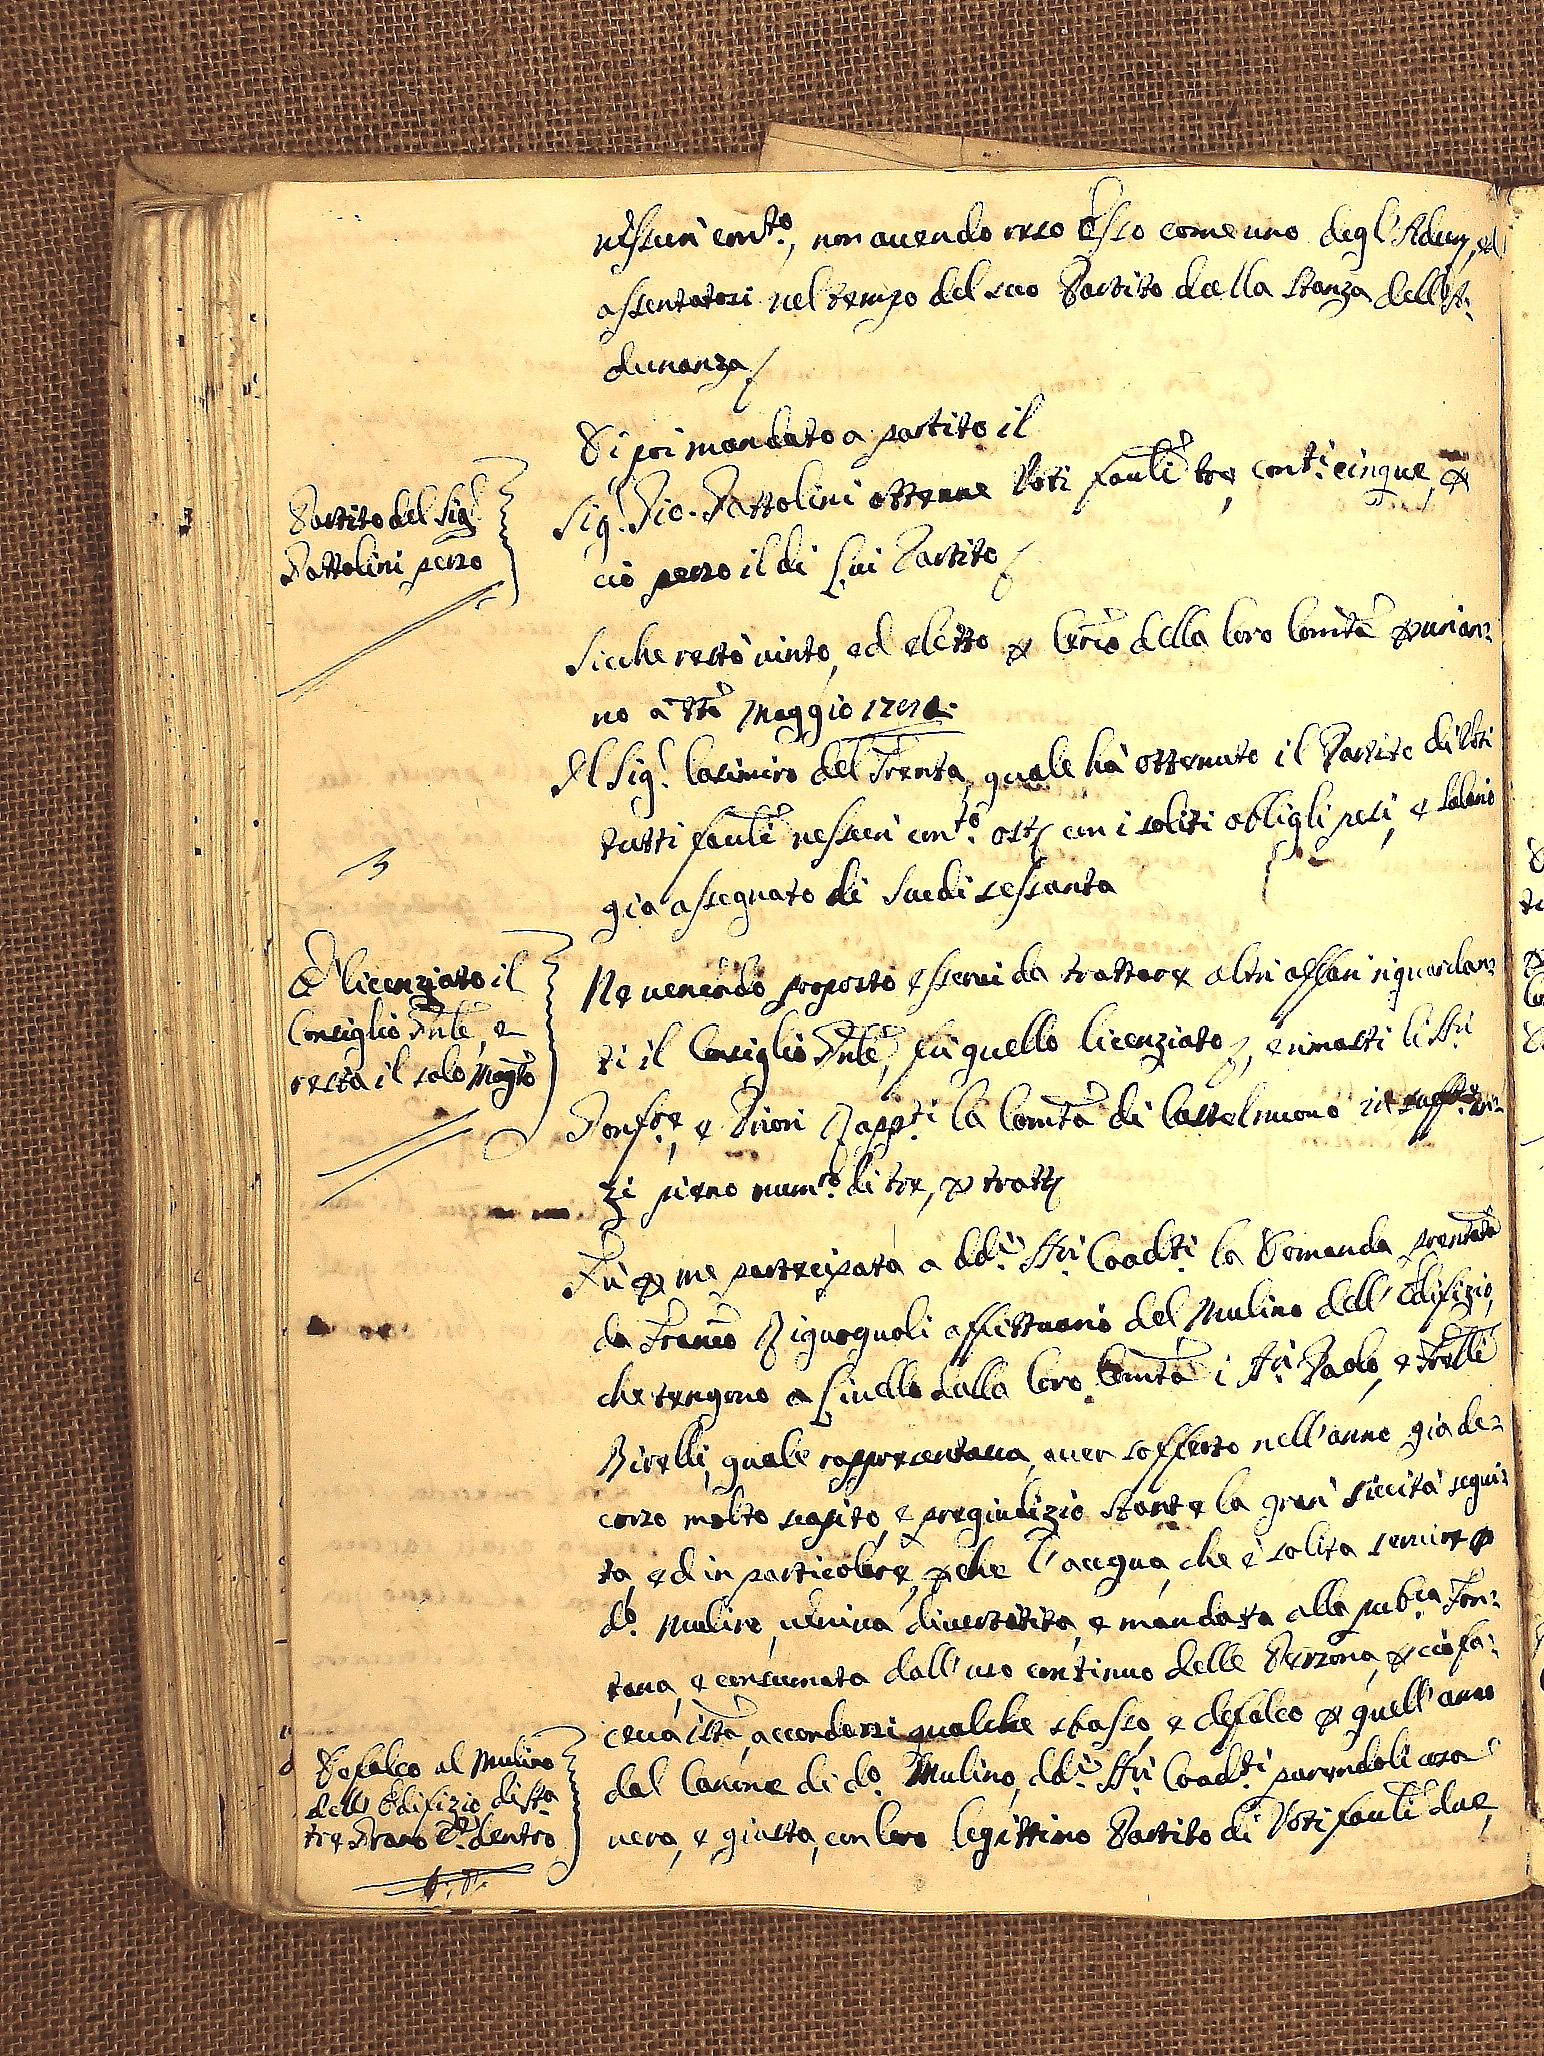 nessun cont.o, non avendo reso esso come uno degl'Adun, ed
assentatosi nel tempo del suo Partito dalla stanza dell'A:
dunanza
Di poi mandato a partito il
Partito del Sig.r
Pattolini perso
Sig.r Pio. Pattolini ottenne Voti fauli tre, cont.i cinque, p
ciò perso il di Lui Partito
Sicche restò vinto, ed eletto p della loro Comtà p un an:
no à tto Maggio
Il Sig.r Casimiro del Trenta, quale hà ottenuto il Partito di Voti
tutti fauli nessun cont.o con i soliti obligli pesi, e Salario
già assegnato di Scudi sessanta
E' licenziato il
Consiglio Pnle, e
resta il solo Magto
Ne venendo proposto esservi da trattare altri affari riguardan:
ti il Consiglio Pnle, fù quello licenziato, e rimasti li SSri
Gonf.re, e Priori Rapp.ti la Comtà di Castelnuovo in
pieno num.o di tre, p
Fù p me partecipata a dd.i SSri Coad.ti la Domanda prentata
da Franco Rigurguoli affittuario del Mulino dell'Edifizio,
che tengono a Livello dalla loro Comtà i SSri Paolo, e Frelli
Birelli, quale rappresentava, aver sofferto nell'anno già de:
corso molto scapito, e pregiudizio stante la gran siccità segui:
ta, ed in particolare, pche l'acqua, che è solita servire p
do. Mulino, veniva divertita, e mandata alla pub.ca Fon:
tana, e consumata dall'uso continuo delle Persona, p ciò fa:
ceva istà, accordarsi qualche sbasso, e defalco p quell'anno
Defalco al Mulino
dell'Edifizio di sta
tre dentro
dal Canone di do. Mulino, dd.i SSri Coad.ti parendoli cosa
vera, e giusta, con loro legittimo Partito di Voti fauli due,